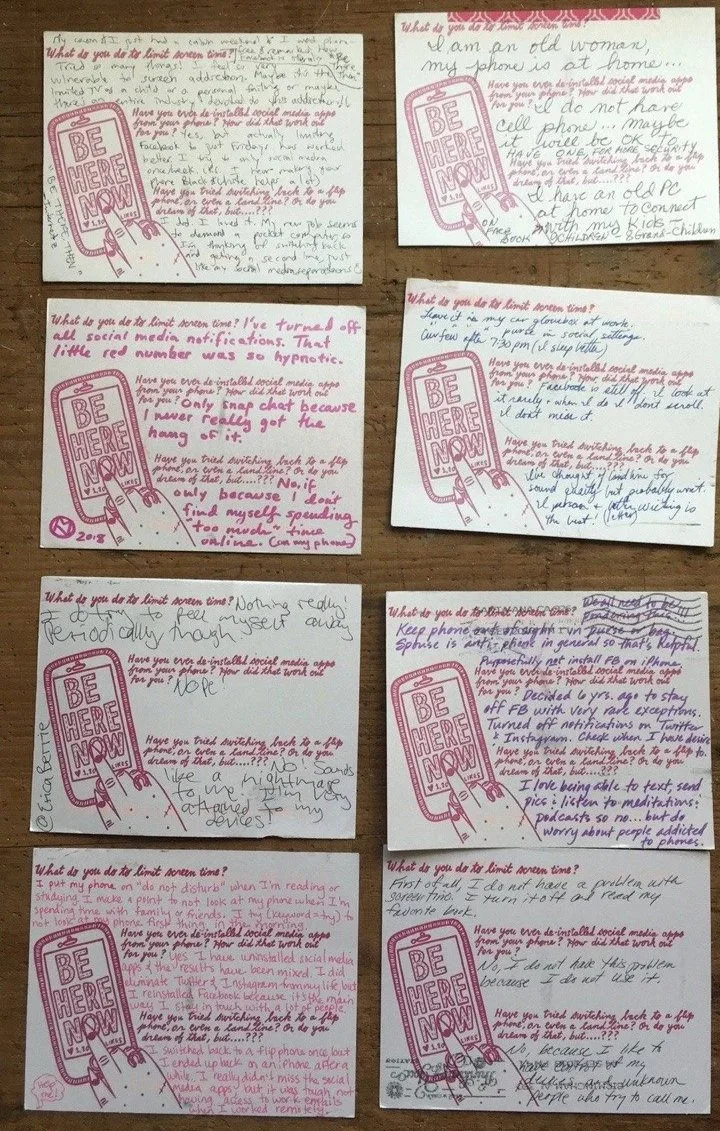 What do you do to limit screen time?
Tried so many things! I feel very
vulnerable to screen addiction. Maybe it's the
limited TV as a child or a personal failing or maybe
there's an entire industry devoted to this addiction!!
Have you ever de-installed social media apps
from your phone? How did that work out
for you? Yes, but actually limiting
Facebook to just Fridays has worked
better. I try to only social media
once/week.
phone Black & White helps a lot)
Have you tried switching back to a flip
phone, or even a landline? Or do you
dream of that, but....???
I did. I loved it. My new job seems
to demand a pocket computer so
I'm thinking of switching back
and getting a second line just
like my social media separations
BE
HERE
NOW
LIKES
What do you do to limit screen time?
I am an old woman,
my phone is at home...
Have you ever de-installed social media apps
from your phone? How did that work out
for you? I do not have
cell phone... maybe
it will be OK to
HAVE ONE, FOR MORE SECURITY
Have you tried switching back to a flip
phone, or even a landline? Or do you
dream of that, but....???
I have an old PC
at home to connect
with my kids
CHILDREN & Grand-Children
ON
FACE
BOOK
BE
HERE
NOW
LIKES
What do you do to limit screen time? I've turned off
all social media notifications. That
little red number was so hypnotic.
Have you ever de-installed social media apps
from your phone? How did that work out
for you? Only snap chat because
I never really got the
hang of it.
Have you tried switching back to a flip
phone, or even a landline? Or do you
dream of that, but....??? No, if
only because I don't
find myself spending
"too much" time
online. (on my phone)
2018
BE
HERE
NOW
LIKES
What do you do to limit screen time?
Leave it in my car glovebox at work.
"   " purse in social settings.
Curfew after 7:30 pm (I sleep better)
Have you ever de-installed social media apps
from your phone? How did that work out
for you? Facebook is still off. I look at
it rarely + when I do I don't scroll.
I don't miss it.
Have you tried switching back to a flip
phone, or even a landline? Or do you
dream of that, but....???
I've thought of landline for
sound quality but probably won't.
In person + writing is
the best! (letters)
BE
HERE
NOW
LIKES
What do you do to limit screen time? Nothing really!
I do try to peel myself away
periodically though
Have you ever de-installed social media apps
from your phone? How did that work out
for you? Nope
Have you tried switching back to a flip
phone, or even a landline? Or do you
dream of that, but....??? No! Sounds
like a nightmare
to me. I'm very
attached to my
devices!
@Erica Berrie
BE
HERE
NOW
LIKES
What do you do to limit screen time?
We all need to be
pondering this...
Keep phone out of sight in purse or bag.
Spouse is anti-phone in general so that's helpful.
Purposefully not install FB on iPhone.
Have you ever de-installed social media apps
from your phone? How did that work out
for you? Decided 6 yrs. ago to stay
off FB with very rare exceptions.
Turned off notifications on Twitter
& Instagram. Check when I have desire
to.
Have you tried switching back to a flip
phone, or even a landline? Or do you
dream of that, but....???
I love being able to text, send
pics & listen to meditations &
podcasts so no... but do
worry about people addicted
to phones.
BE
HERE
NOW
LIKES
What do you do to limit screen time?
I put my phone on "do not disturb" when I'm reading or
studying. I make a point to not look at my phone when I'm
spending time with family or friends. I try (keyword = try) to
not look at my phone first thing in the morning.
Have you ever de-installed social media apps
from your phone? How did that work out
for you? Yes I have uninstalled social media
apps & the results have been mixed. I did
eliminate Twitter & Instagram from my life but
I reinstalled Facebook because it's the main
way I stay in touch with a lot of people.
Have you tried switching back to a flip
phone, or even a landline? Or do you
dream of that, but....???
I switched back to a flip phone once, but
I ended up back on an iPhone after a
while. I really didn't miss the social
media apps but it was tough not
having access to work emails
when I worked remotely.
Help me!
BE
HERE
NOW
LIKES
What do you do to limit screen time?
First of all, I do not have a problem with
screen time. I turn it off and read my
favorite book.
Have you ever de-installed social media apps
from your phone? How did that work out
for you?
No, I do not have this problem
because I do not use it.
Have you tried switching back to a flip
phone, or even a landline? Or do you
dream of that, but....???
No, because I like to
of my
friends and unknown
people who try to call me.
BE
HERE
NOW
LIKES